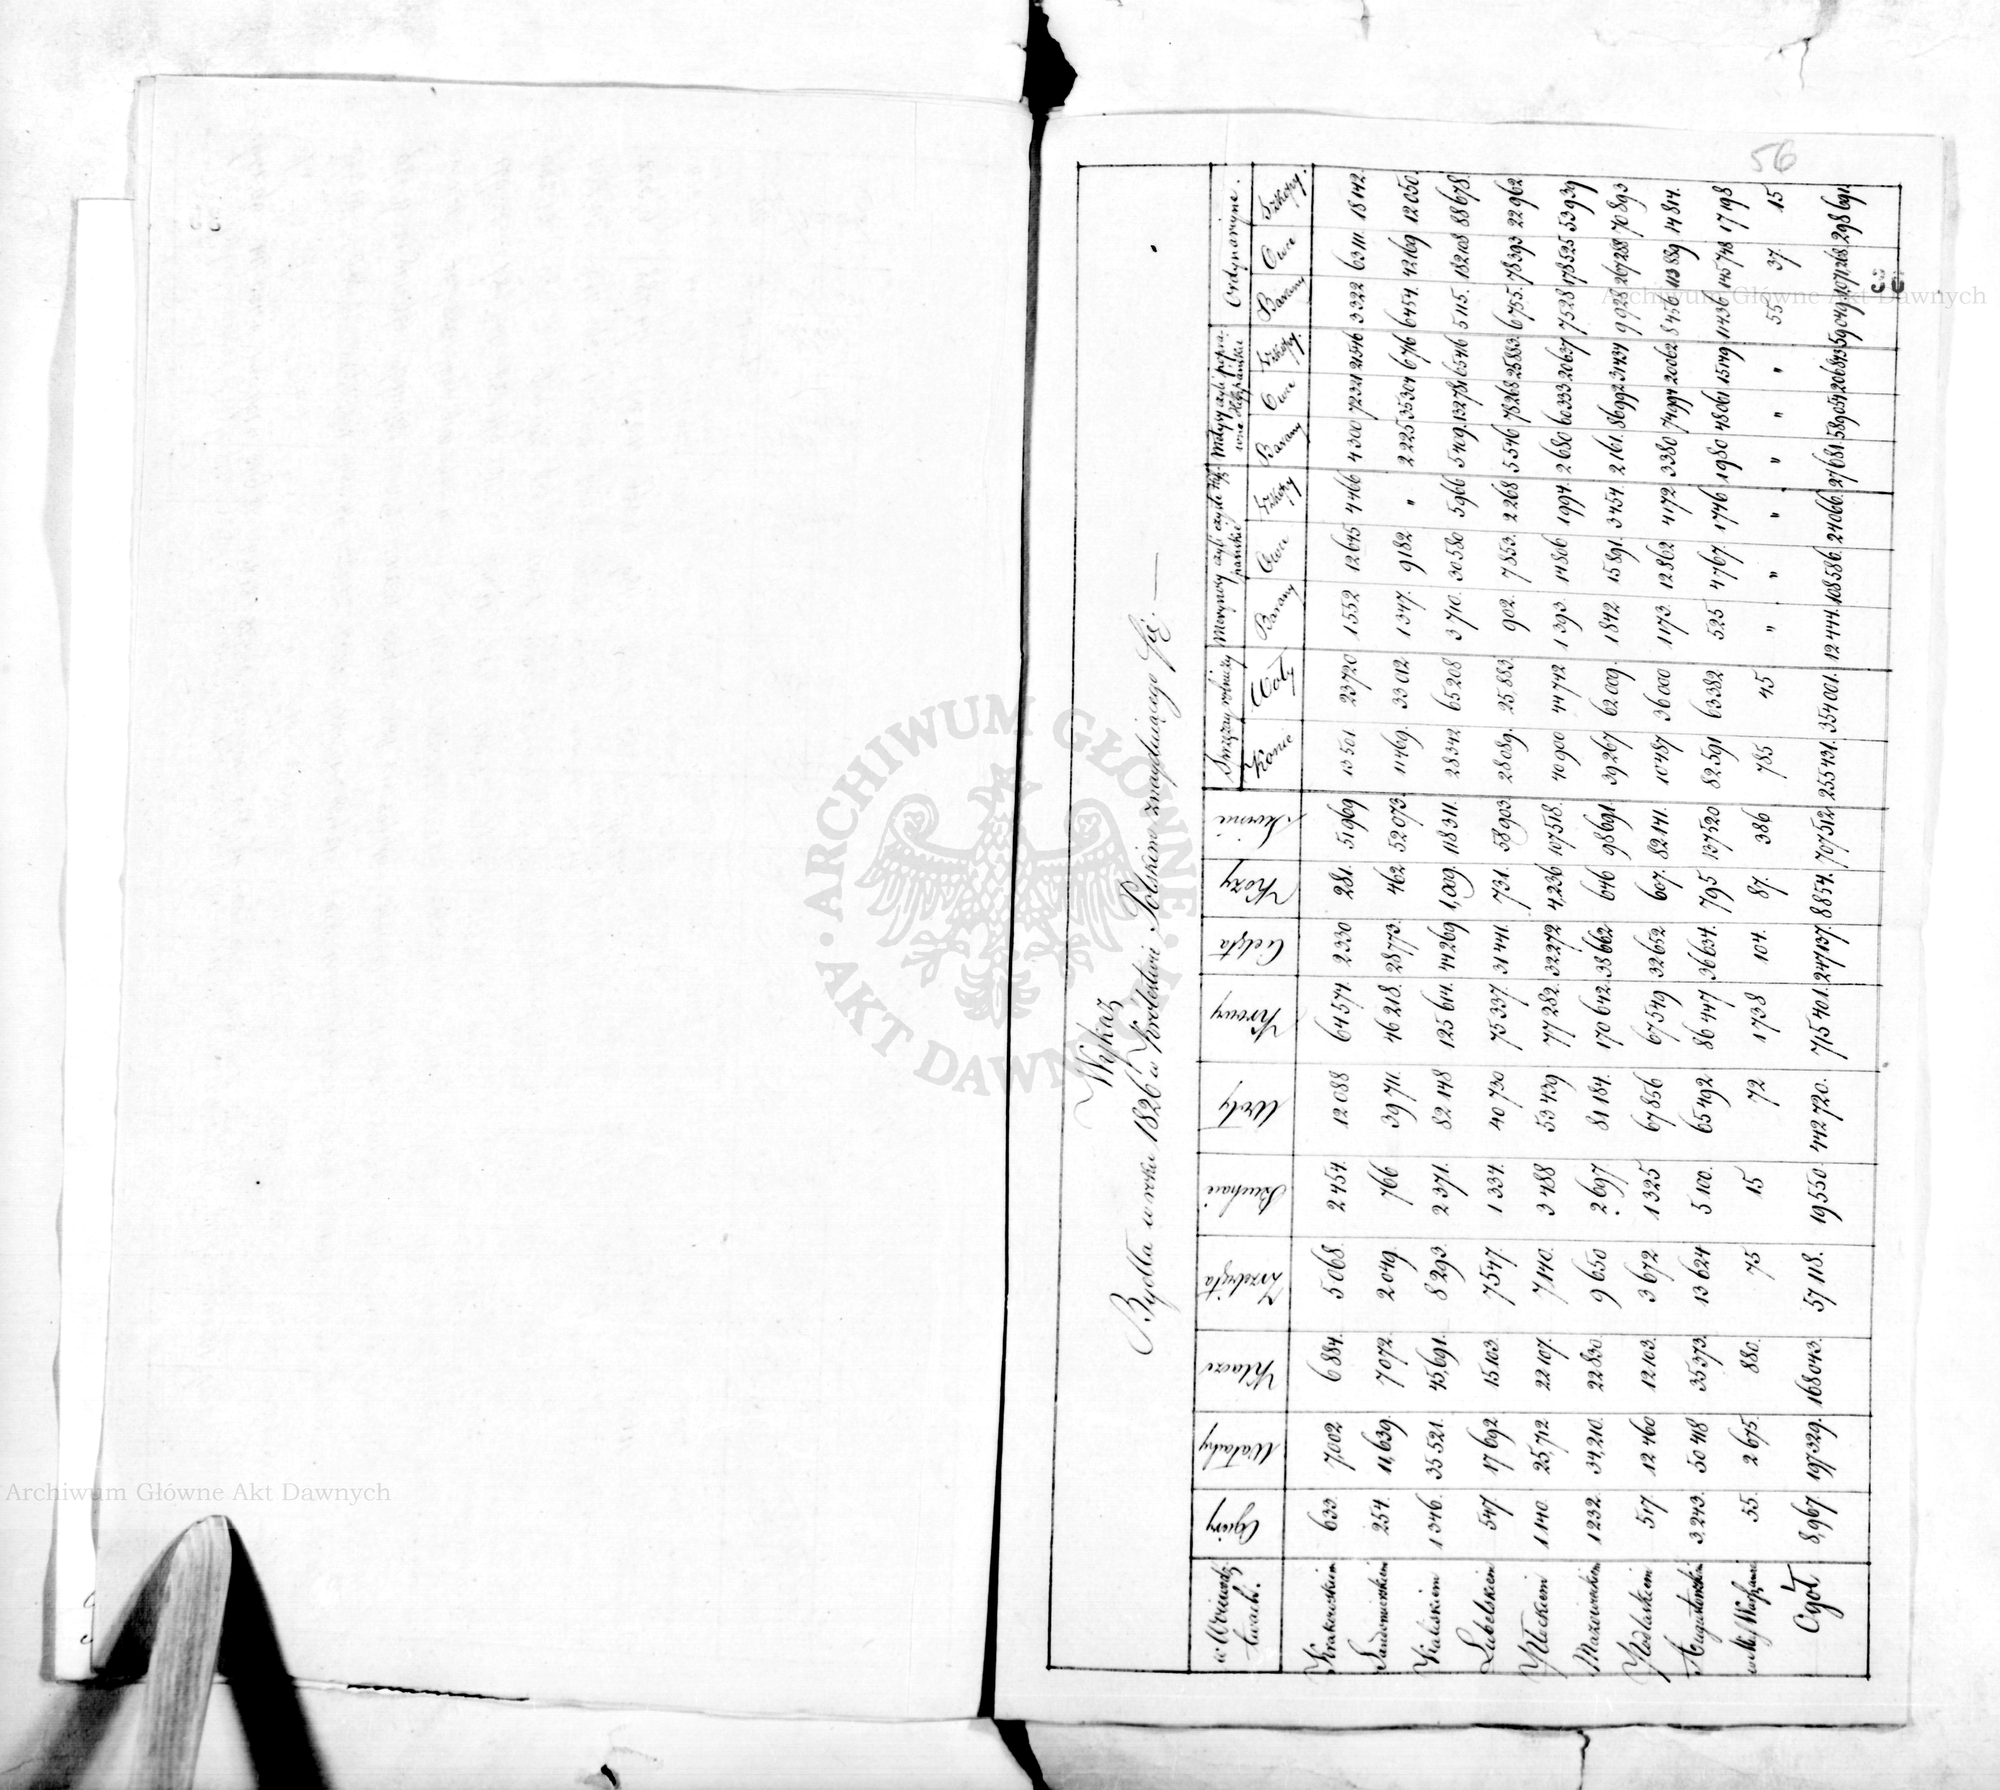 56
Wykaz
Bydła w roku 1826 w Królestwie Polskim znayduiącego Się. —
w Wojewódz Ogiery Wałachy Klacze Źrzebięta Buhaie Woły Krowy Cielęta Kozy Świnie Sprzężay rolniczy Merynosy czyli czyste Hiszpańskie Metysy czyli poprawne Hiszpańskie Ordynaryine.
twach. Konie Woły Barany Owce Szkopy Barany Owce Szkopy. Barany Owce Szkopy.
Krakowskiem 633. 7,002 6884. 5068. 2454. 12088 64574. 2330 281. 51969 13501 23720 1552 12645 4466 4300 72321 21546 3322 63111. 18142
Sandomierskiem 254. 11,639. 7072 2049. 766 39711. 46218. 28773. 462 52073. 11469. 33012 1347. 9182 " 2225 35304 6746 6454. 42169 12050.
Kaliskiem 1346. 35521. 45,691. 8293. 2371. 82148 125614. 44269 1,009. 118311. 28342 65208 3710. 30580 5966 5409. 132781 61546 5115. 182108 88678.
Lubelskiem 547 17692 15103. 7547. 1334. 40730 75337. 31441. 731. 58903. 28089. 25,883. 902. 7853. 2268 5546 78268 25883. 6755. 78393 22962
Płockiem 1140. 25712 22107. 7140. 3488 53439 77282. 32272 4,236 107518. 40900 44742 1393. 14806 1994. 2680 60333 20637 7528 178525 53939
Mazowieckiem 1232. 34,210. 22830. 9650 2697 81184. 170642. 38662 646 98691. 39267 62009. 1842. 15891. 3454. 2161. 86992 31434 9928 267288 70893
Podlaskiem 517. 12460 12103. 3672 1325 67856 67549 32652 607. 82141. 10487 36000 1173. 12862 4172 3380 74994 20062 8456 113889 14814.
Augustowskiem 3,243. 50418 35373. 13624 5100. 65492 86447 36634. 795 137520 82591 63382 525 4767. 1746 1980 48061 15149. 11436 145748 17198
w M. Warszawie 55. 2675. 880. 75 15 72 1738 104. 87. 386 785 45 " " " " " " 55 37. 15
Ogół 8,967. 197329. 168043. 57118. 19550 442720. 715401. 247137. 8854. 707512. 255431. 354001. 12444. 108586. 24066. 27681. 589054 206843 59049. 1071268. 298691.
Archiwum Główne Akt Dawnych
Archiwum Główne Akt Dawnych
ARCHIWUM GŁÓWNE AKT DAWNYCH